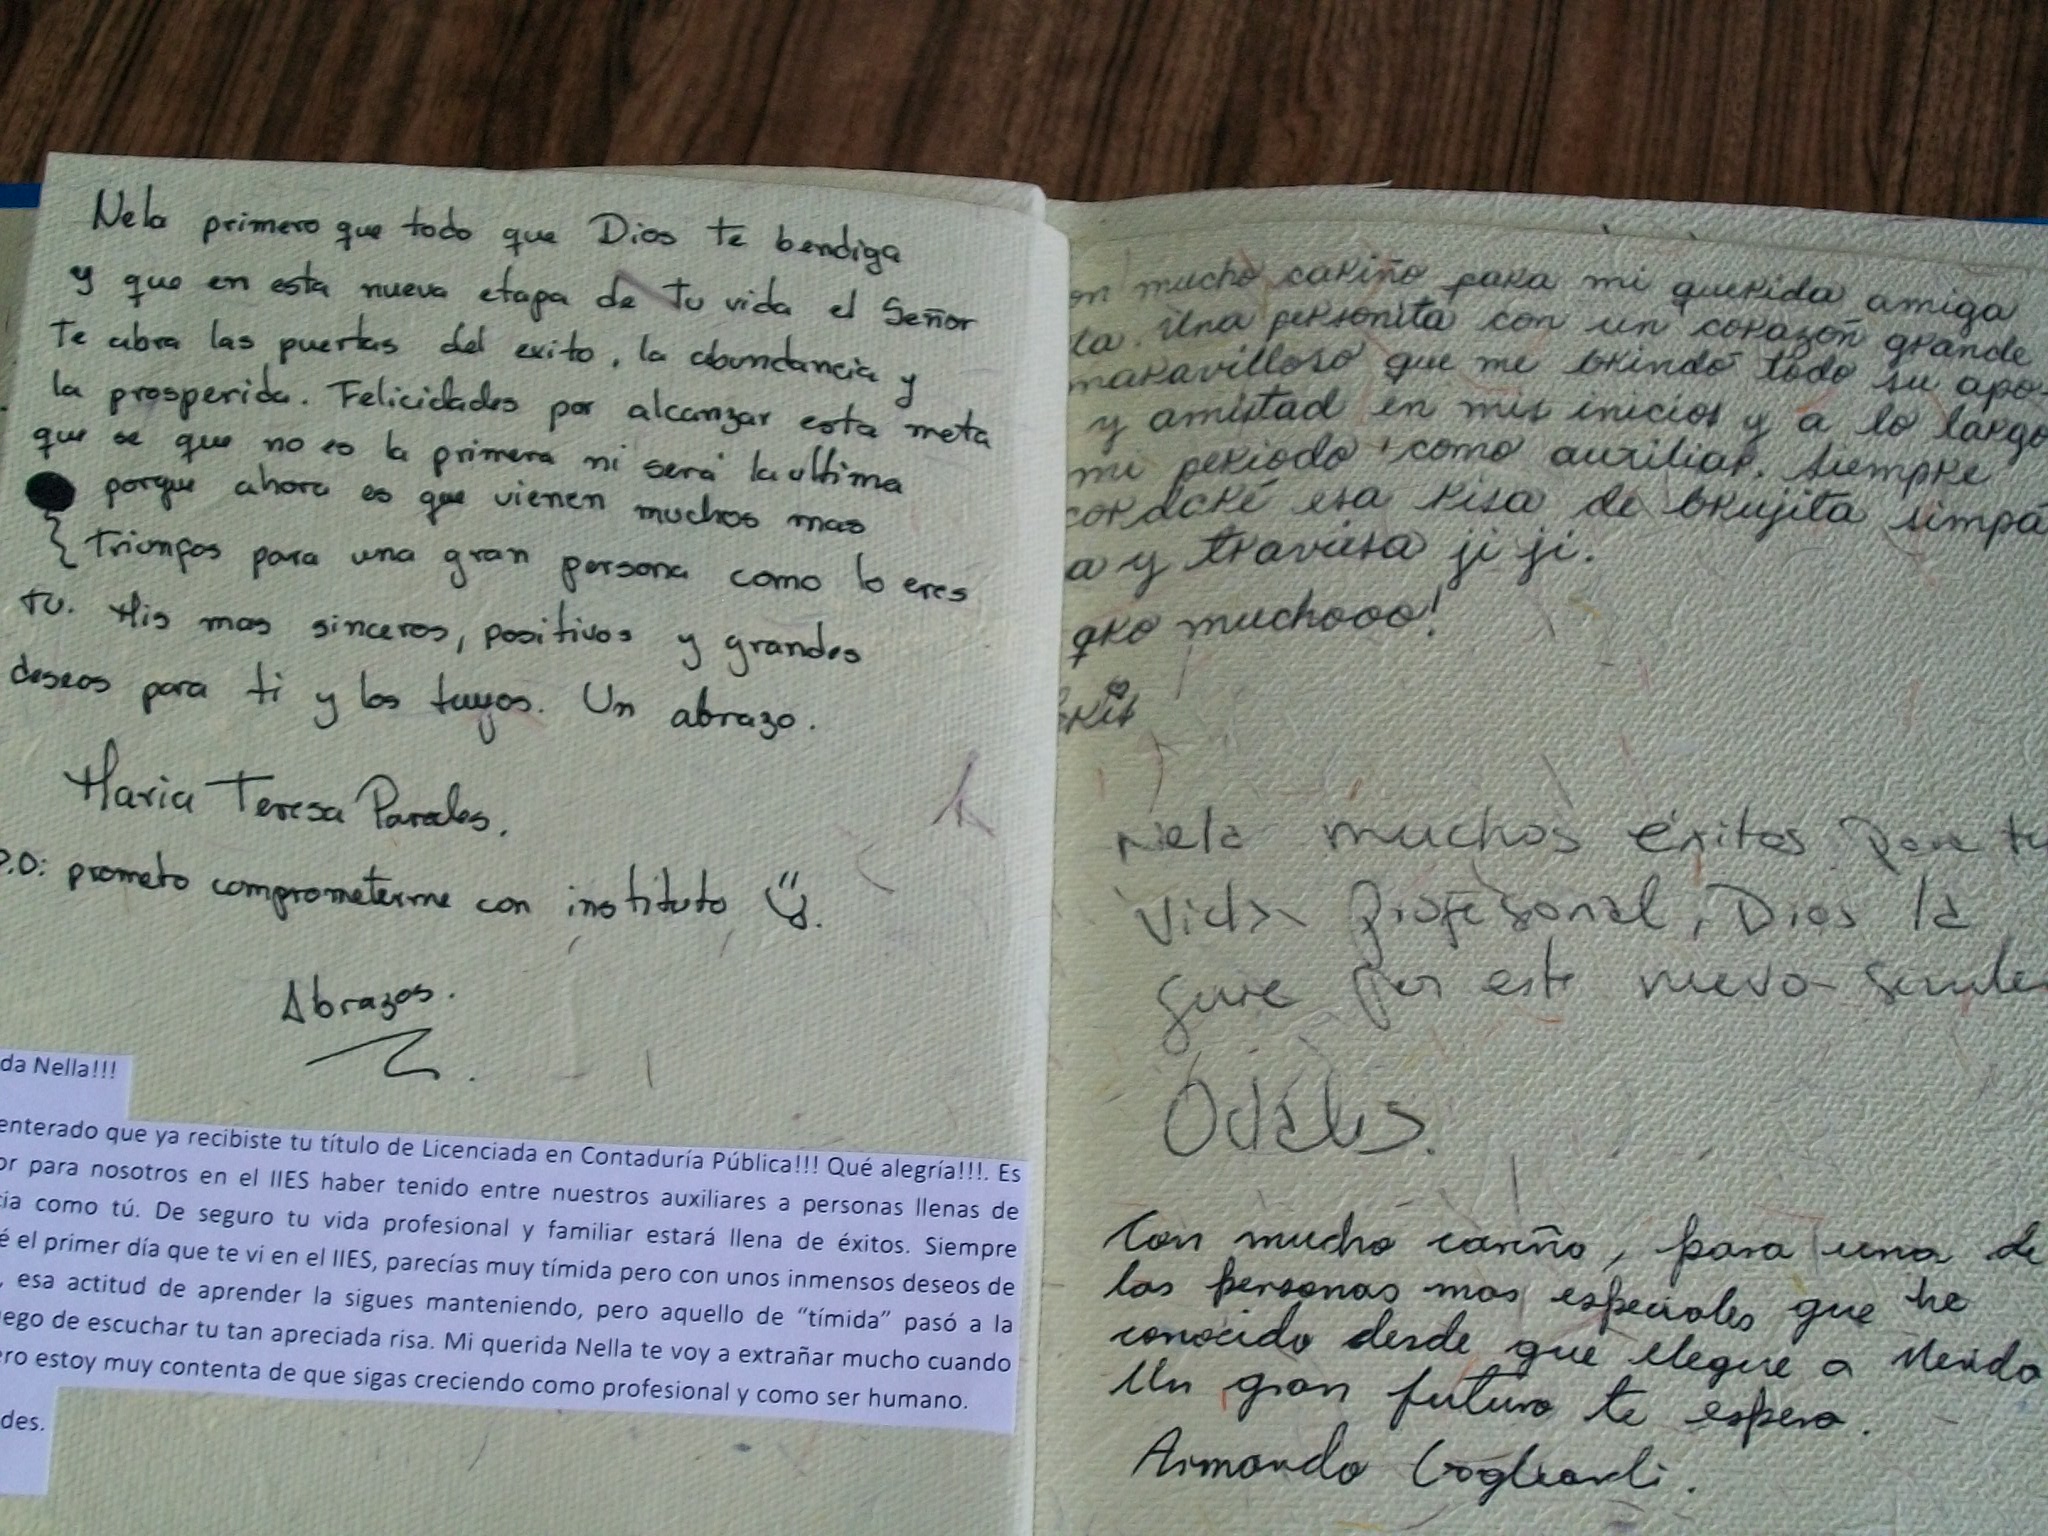 Nela primero que todo que Dios te bendiga
y que en esta nueva etapa de tu vida el Señor
te abra las puertas del exito, la abundancia y
la prosperida. Felicidades por alcanzar esta meta
que se que no es la primera ni será la ultima
porque ahora es que vienen muchos mas
triunfos para una gran persona como lo eres
tu. Mis mas sinceros, positivos y grandes
deseos para ti y los tuyos. Un abrazo.
Maria Teresa Paredes.
P.D: prometo comprometerme con instituto
Abrazos.
da Nella!!!
enterado que ya recibiste tu título de Licenciada en Contaduría Pública!!! Qué alegría!!!. Es
or para nosotros en el IIES haber tenido entre nuestros auxiliares a personas llenas de
cia como tú. De seguro tu vida profesional y familiar estará llena de éxitos. Siempre
é el primer día que te vi en el IIES, parecías muy tímida pero con unos inmensos deseos de
, esa actitud de aprender la sigues manteniendo, pero aquello de “tímida” pasó a la
uego de escuchar tu tan apreciada risa. Mi querida Nella te voy a extrañar mucho cuando
ero estoy muy contenta de que sigas creciendo como profesional y como ser humano.
des.
on mucho cariño para mi querida amiga
la. Una personita con un corazón grande
maravilloso que me brindó todo su apo-
y amistad en mis inicios y a lo largo
mi periodo como auxiliar. Siempre
cordaré esa risa de brujita simpá
a y traviesa ji ji.
qro muchooo!
Nela muchos éxitos para tu
vida profesional, Dios la
guie por este nuevo sende
Odalis.
Con mucho cariño, para una de
las personas mas especiales que he
conocido desde que llegue a Merida
Un gran futuro te espera.
Armando Gogliardi.